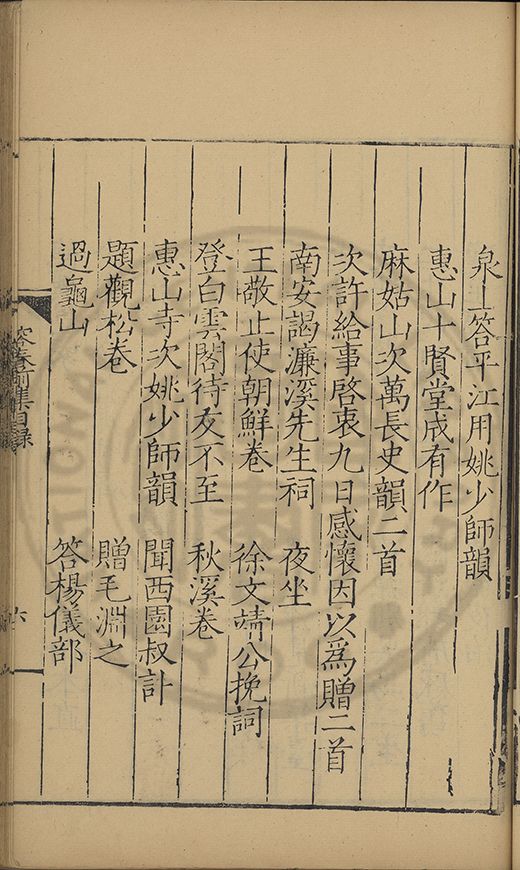 泉上答平江用姚少師韻
惠山十賢堂成有作
麻姑山次萬長史韻二首
次許給事啓衷九日感懷因以爲贈二首
南安謁濂溪先生祠　夜坐
王敬止使朝鮮卷　徐文靖公挽詞
登白雲閣待友不至　秋溪卷
惠山寺次姚少師韻　聞西園叔訃
題觀松卷　贈毛淵之
過龜山　答楊儀部
容春前集目録
六